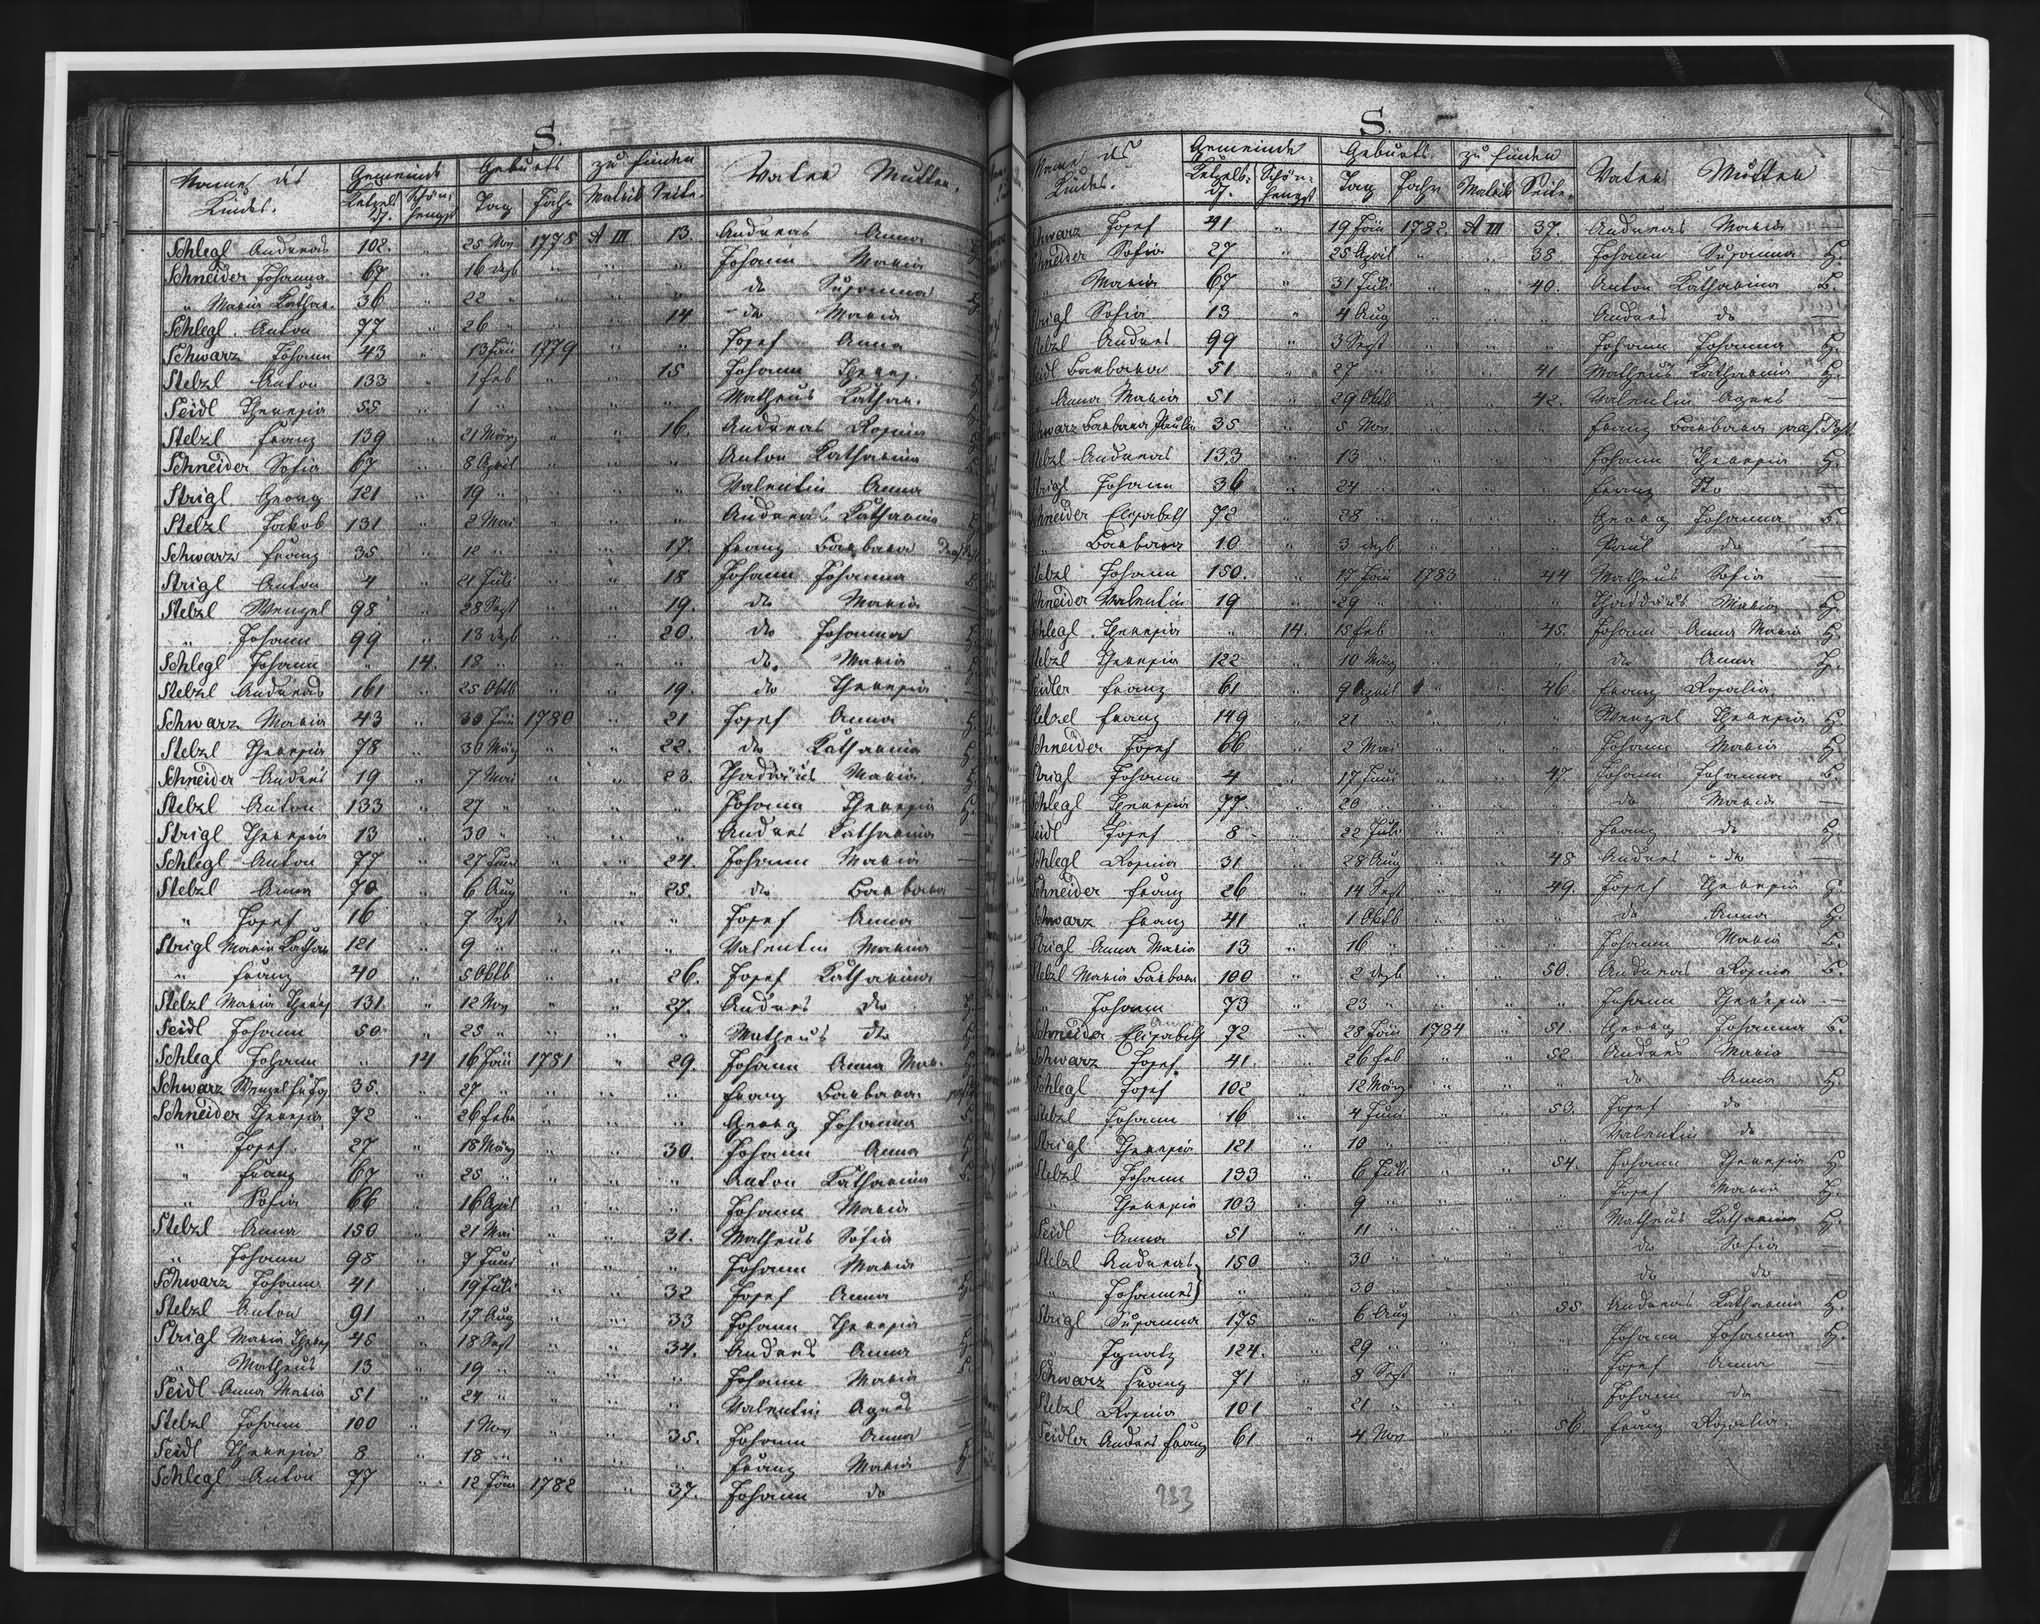 S.
Name des Kindes. Gemeinde Ketzelsdf. Schönhengst Geburts Tag Jahr zu finden Matrik Seite. Vater Mutter.
Schlegl Andreas 102. " 25 Nov 1778 A III 13. Andreas Anna
Schneider Johanna 67 " 16 dezb " " " Johann Maria
" Maria Kathar. 36 " 22 " " " " do Susanna
Schlegl Anton 77 " 26 " " " 14 do Maria
Schwarz Johann 43 " 13 Jän 1779 " " Josef Anna
Stelzl Anton 133 " 1 feb " " 15 Johann Theres.
Seidl Theresia 55 " 1 " " " " Matheus Kathar.
Stelzl Franz 139 " 21 März " " 16. Andreas Rosina
Schneider Sofia 67 " 8 April " " " Anton Katharina
Strigl Georg 121 " 19 " " " " Valentin Anna
Stelzl Jakob 131 " 2 Mai " " " Andreas Katharina
Schwarz Franz 35 " 12 " " " 17. Franz Barbara
Strigl Anton 4 " 21 Juli " " 18 Johann Johanna
Stelzl Wenzel 98 " 28 Sept " " 19. do Maria
" Johann 99 " 13 dezb " " 20. do Johanna
Schlegl Johann " 14. 18 " " " " do. Maria
Stelzl Andreas 161 " 25 Oktb " " 19. do Theresia
Schwarz Maria 43 " 30 Jän 1780 " 21 Josef Anna
Stelzl Theresia 78 " 30 März " " 22. do Katharina
Schneider Andres 19 " 7 Mai " " 23 Thaddäus Maria
Stelzl Anton 133 " 27 " " " " Johann Theresia
Strigl Theresia 13 " 30 " " " " Andres Katharina
Schlegl Anton 77 " 27 Juni " " 24. Johann Maria
Stelzl Anna 70 " 6 Aug " " 25. do Barbara
" Josef 16 " 7 Sept " " " Josef Anna
Strigl Maria Kathar 121 " 9 " " " " Valentin Maria
" Franz 40 " 5 Oktb " " 26. Josef Katharina
Stelzl Maria Theres 131. " 12 Nov " " 27. Andres do
Seidl Johann 50 " 25 " " " " Matheus do
Schlegl Johann " 14 16 Jän 1781 " 29. Johann Anna Mar.
Schwarz Wenzel Fr Jos 35. " 27 " " " " Franz Barbara
Schneider Theresia 72 " 26 febr " " " Georg Johanna
" Josef 27 " 18 März " " 30. Johann Anna
" Franz 67 " 25 " " " " Anton Katharina
" Sofia 66 " 16 April " " " Johann Maria
Stelzl Anna 150 " 21 Mai " " 31. Matheus Sofia
" Johann 98 " 7 Juni " " " Johann Maria
Schwarz Johann 41 " 19 Juli " " 32 Josef Anna
Stelzl Anton 91 " 17 Aug " " 33 Johann Theresia
Strigl Maria Theres 45 " 18 Sept " " 34. Andres Anna
" Matheus 13 " 19 " " " " Johann Maria
Seidl Anna Maria 51 " 24 " " " " Valentin Agnes
Stelzl Johann 100 " 1 Nov " " 35. Johann Anna
Seidl Theresia 8 " 18 " " " " Franz Maria
Schlegl Anton 77 " 12 Jän 1782 " 37. Johann do
S.
Name des Kindes. Gemeinde Ketzelsdf. Schönhengst Geburts Tag Jahr zu finden Matrik Seite. Vater Mutter
Schwarz Josef 41 " 19 Jän 1782 A III 37. Andreas Maria —
Schneider Sofia 27 " 25 April " " 38. Johann Susanna H.
" Maria 67 " 31 Juli " " 40. Anton Katharina
Strigl Sofia 13 " 4 Aug " " " Andres do —
Stelzl Andres 99 " 3 Sept " " " Johann Johanna H.
Seidl Barbara 51 " 27 " " " 41 Matheus Katharina H.
" Anna Maria 51 " 29 Oktb " " 42. Valentin Agnes —
Schwarz Barbara Paulin 35 " 5 Nov " " " Franz Barbara
Stelzl Andreas 133 " 13 " " " " Johann Theresia H.
Strigl Johann 36 " 24 " " " " Franz do —
Schneider Elisabeth 72 " 28 " " " " Georg Johanna
" Barbara 10 " 3 dezb " " " Paul do —
Stelzl Johann 150. " 17 Jän 1783 " 44 Matheus Sofia —
Schneider Valentin 19 " 29 " " " " Thaddäus Maria H.
Schlegl Theresia " 14. 15 feb " " 45. Johann Anna Maria H.
Stelzl Theresia 122 " 10 März " " " do Anna H.
Seidler Franz 61 " 9 April " " 46. Franz Rosalia
Stelzl Franz 149 " 21 " " " " Wenzel Theresia H.
Schneider Josef 66 " 2 Mai " " " Johann Maria H.
Strigl Johann 4 " 17 Juni " " 47. Johann Johanna
Schlegl Theresia 77. " 20 " " " " do Maria —
Seidl Josef 8 " 22 Juli " " " Franz do H.
Schlegl Rosina 31 " 28 Aug " " 48 Andres do —
Schneider Franz 26 " 14 Sept " " 49. Josef Theresia
Schwarz Franz 41 " 1 Oktb " " " do Anna H.
Strigl Anna Maria 13 " 16 " " " " Johann Maria
Stelzl Maria Barbara 100 " 2 dezb " " 50. Andreas Rosina
" Johann 73 " 23 " " " " Johann Theresia —
Schneider Elisabeth 72 " 28 Jän 1784 " 51 Georg Johanna
Schwarz Josef 41. " 26 feb " " 52 Andres Maria —
Schlegl Josef 102 " 12 März " " " do Anna H.
Stelzl Johann 16 " 4 Juni " " 53. Josef do
Strigl Theresia 121 " 10 " " " " Valentin do —
Stelzl Johann 133 " 6 Juli " " 54. Johann Theresia H.
" Theresia 103 " 9 " " " " Josef Maria H.
Seidl Anna 51 " 11 " " " " Matheus Katharina H.
Stelzl Andreas 150 " 30 " " " " do Sofia —
" Johannes " " 30 " " " " do do —
Strigl Susanna 175 " 6 Aug " " 55 Andreas Katharina H.
" Ignatz 124. " 29 " " " " Johann Johanna H.
Schwarz Franz 71 " 8 Sept " " " Josef Anna —
Stelzl Rosina 101 " 21 " " " " Johann do —
Seidler Andres Franz 61 " 4 Nov " " 56. Franz Rosalia.